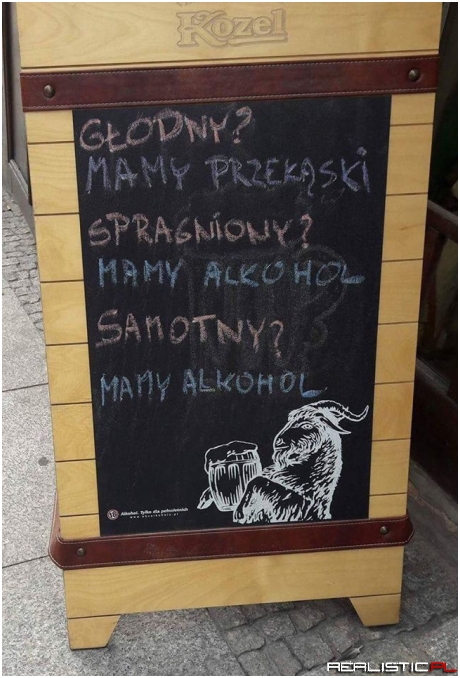 Kozel
GŁODNY?
MAMY PRZEKĄSKI
SPRAGNIONY?
MAMY ALKOHOL
SAMOTNY?
MAMY ALKOHOL
18 Alkohol. Tylko dla pełnoletnich
REALISTIC.PL